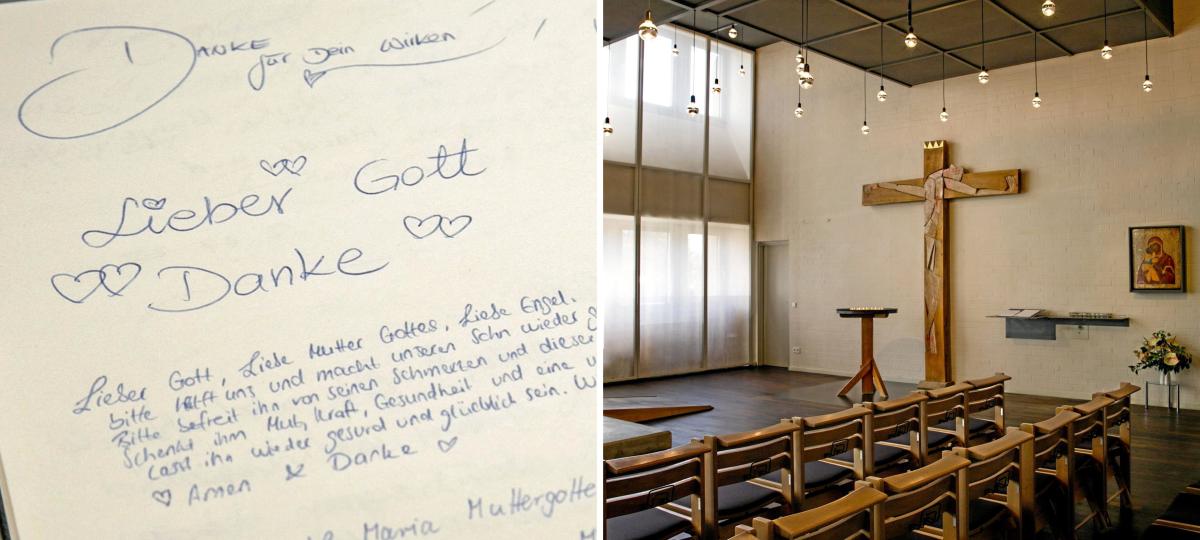 DANKE
für Dein Wirken
Lieber Gott
Danke
Lieber Gott, Liebe Mutter Gottes, Liebe Engel.
bitte helft uns und macht unseren Sohn wieder
Bitte befreit ihn von seinen Schmerzen und dieser
Schenkt ihm Mut, Kraft, Gesundheit und eine
Lasst ihn wieder gesund und glücklich sein.
Amen & Danke
Maria Muttergotte